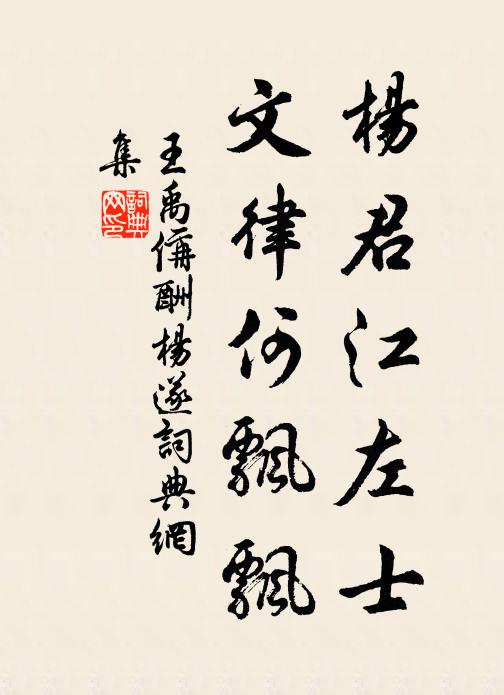 楊君江左士
文律何飄飄
王禹偁酬楊遂詞典網
集
詞典網印